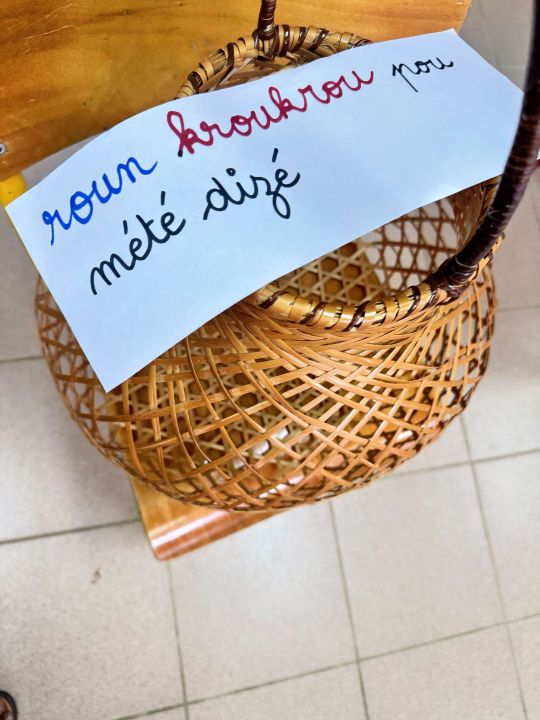 roun kroukrou pou
mété dizé